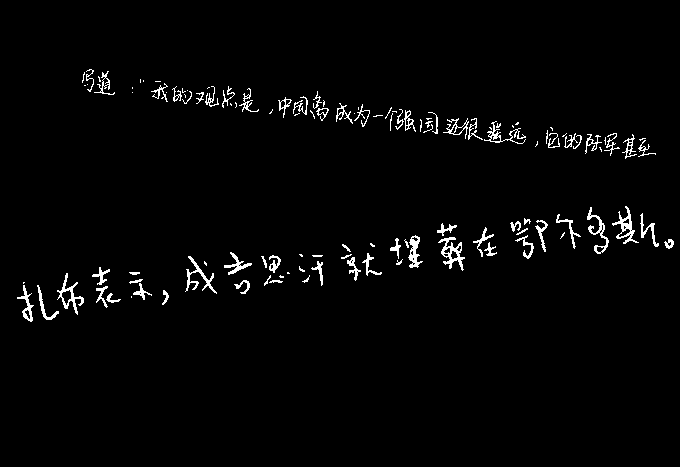 写道：“我的观点是，中国离成为一个强国还很遥远，它的陆军甚至
扎布表示，成吉思汗就埋葬在鄂尔多斯。